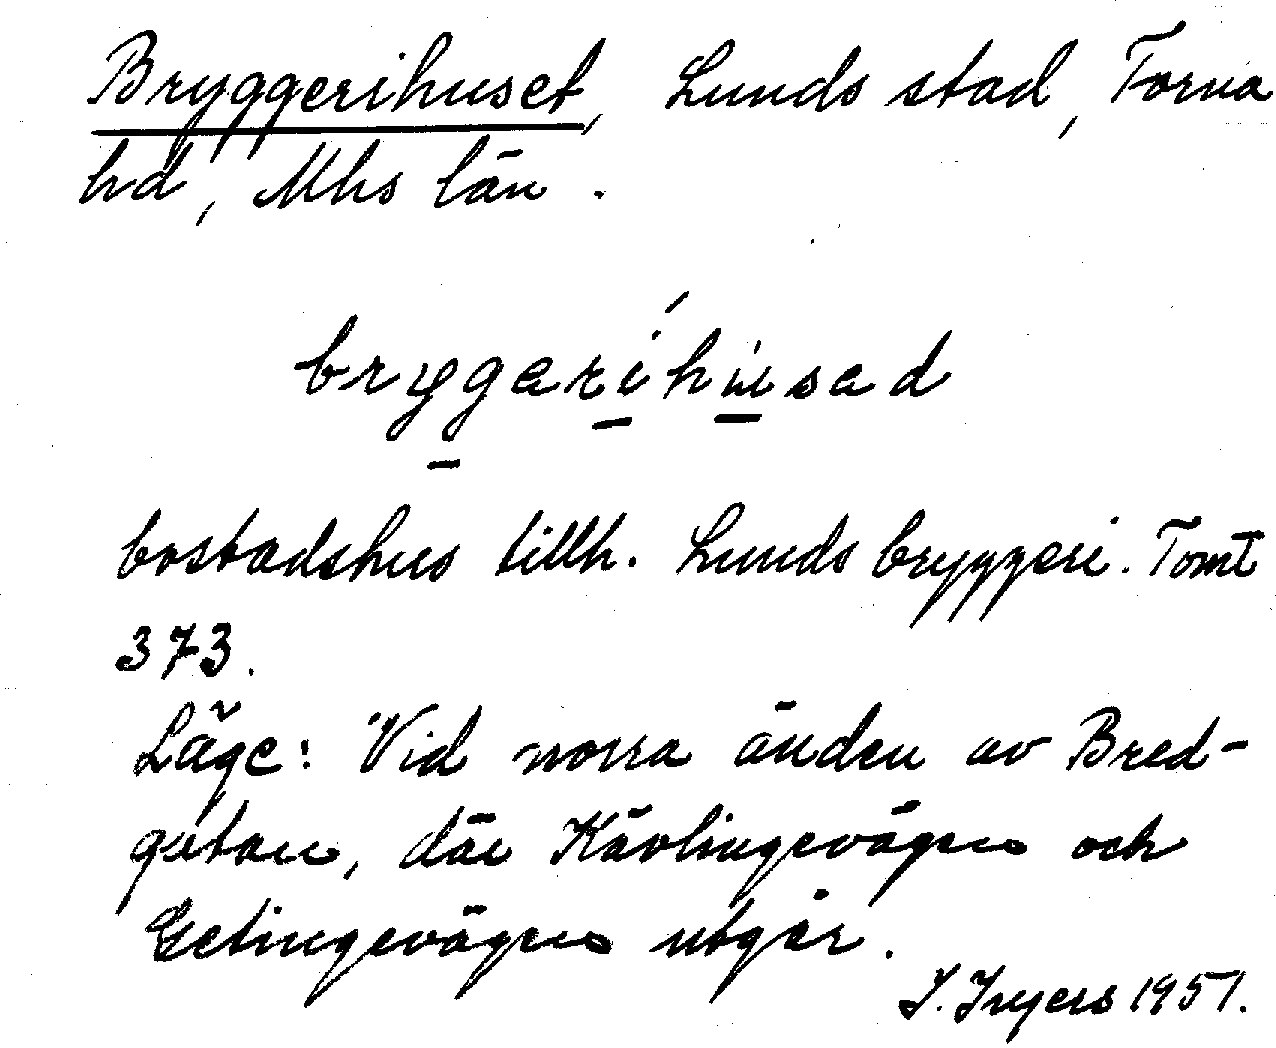 Bryggerihuset, Lunds stad, Torna
hd, Mhs län.
brygarihusad
bostadshus tillh. Lunds bryggeri. Tomt
373.
Läge: Vid norra änden av Bred-
gatan, där Kävlingevägen och
Getingevägen utgår.
I. Ingers 1951.